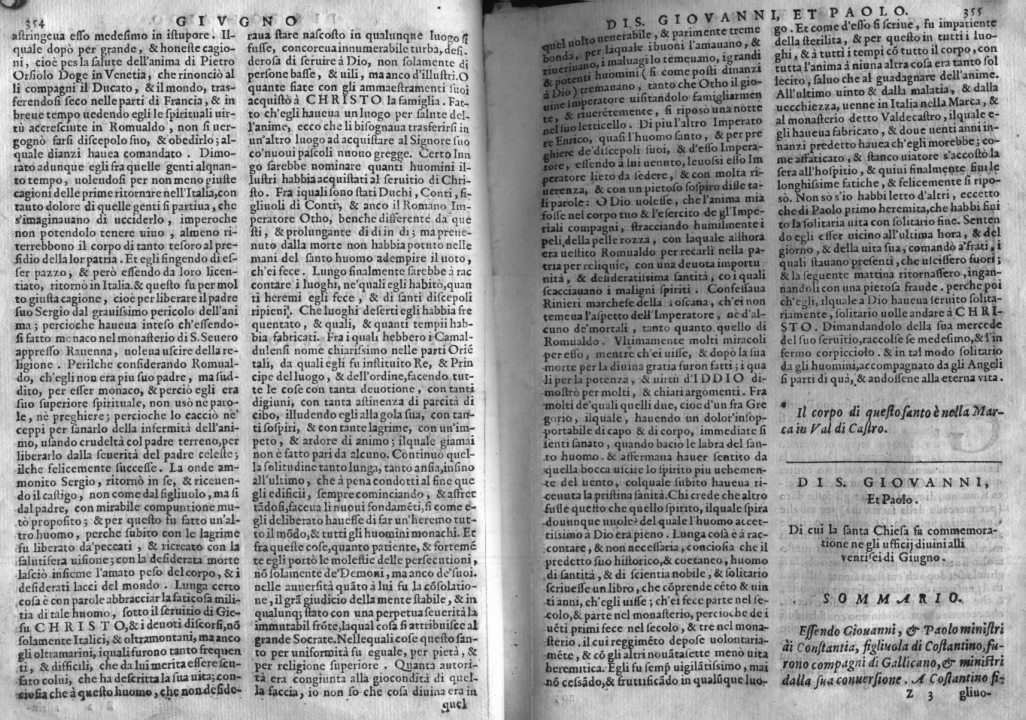 354
GIVGNO
astringeua esso medesimo in istupore. Il-
quale dopò per grande, & honeste cagio-
ni, cioè pes la salute dell'anima di Pietro
Orsiolo Doge in Venetia, che rinonciò al
li compagni il Ducato, & il mondo, tras-
ferendosi seco nelle parti di Francia, & in
breue tempo uedendo egli le spirituali uir-
tù accresciute in Romualdo, non si uer-
gognò farsi discepolo suo, & obedirlo; al-
quale dianzi hauea comandato. Dimo-
rato adunque egli fra quelle genti alqnan-
to tempo, uolendosi per non meno giuste
cagioni delle prime ritornare nell'Italia, con
tanto dolore di quelle genti si partiua, che
s'imaginauano di ucciderlo, imperoche
non potendolo tenere uiuo, almeno ri-
terrebbono il corpo di tanto tesoro al pre-
sidio della lor patria. Et egli fingendo di es-
ser pazzo, & però essendo da loro licen-
tiato, ritornò in Italia. & questo fu per mol
to giusta cagione, cioè per liberare il padre
suo Sergio dal grauissimo pericolo dell'ani
ma; percioche haueua inteso ch'essendo-
si fatto monaco nel monasterio di S. Seuero
appresso Rauenna, uoleua uscire della re-
ligione. Perilche considerando Romual-
do, ch'egli non era piu suo padre, ma sud-
dito, per esser monaco, & perciò egli era
suo superiore spirituale, non usò ne paro-
le, ne preghiere; percioche lo cacciò ne'
ceppi per sanarlo della infermità dell'ani-
mo, usando crudeltà col padre terreno, per
liberarlo dalla seuerità del padre celeste;
ilche felicemente successe. La onde am-
monito Sergio, ritornò in se, & riceuen-
do il castigo, non come dal figliuolo, ma sì
dal padre, con mirabile compuntione mu-
tò proposito; & per questo fu fatto un'al-
tro huomo, perche subito con le lagrime
fu liberato da' peccati, & ricreato con la
salutifera uisione; con la desiderata morte
lasciò insieme l'amato peso del corpo, & i
desiderati lacci del mondo. Lunga certo
cosa è con parole abbracciar la fatica sua mili
tia di tale huomo, sotto il seruitio di Gie-
su CHRISTO, & i deuoti discorsi, nō
solamente Italici, & oltramontani, ma anco
gli oltramarini, iquali furono tanto frequen
ti, & difficili, che da lui merita essere scu-
sato colui, che ha descritta la sua uita; con-
ciosia che à questo huomo, che non deside-
raua stare nascosto in qualunque luogo si
fusse, concoreua innumerabile turba, desi-
derosa di seruire à Dio, non solamente di
persone basse, & uili, ma anco d'illustri. O
quante fiate con gli ammaestramenti suoi
acquistò à CHRISTO la famiglia. Fat-
to ch'egli haueua un luogo per salute del-
l'anime, ecco che li bisognaua trasferirsi in
un'altro luogo ad acquistare al Signore suo
co'nuoui pascoli nuouo gregge. Certo lun
go sarebbe nominare quanti huomini il-
lustri habbia acquistati al seruitio di Chri-
sto. Fra iquali sono stati Duchi, Conti, fi-
gliuoli di Conti, & anco il Romano Im-
peratore Otho, benche differente da que
sti, & prolungante di dì in dì; ma preue-
nuto dalla morte non habbia potuto nelle
mani del santo huomo adempire il uoto,
ch'ei fece. Lungo finalmente sarebbe à rac
contare i luoghi, ne'quali egli habitò, quan
ti heremi egli fece, & di santi discepoli
ripieni. Che luoghi deserti egli habbia fre
quentato, & quali, & quanti tempii hab-
bia fabricati. Fra i quali hebbero i Camal-
dulensi nome chiarissimo nelle parti Oriē
tali, da quali egli fu instituito Re, & Prin
cipe del luogo, & dell'ordine, facendo tut-
te le cose con tanta deuotione, con tanti
digiuni, con tanta astinenza di parcità di
cibo, illudendo egli alla gola sua, con tan-
ti sospiri, & con tante lagrime, con un'im-
peto, & ardore di animo; ilquale giamai
non è fatto pari da alcuno. Continuò quel-
la solitudine tanto lunga, tanto ansia, insino
all'ultimo, che à pena condotti al fine que
gli edificii, sempre cominciando, & affret
tādosi, faceua li nuoui fondamēti, sì come e-
gli deliberato hauesse di far un'heremo tut-
to il mōdo, & tutti gli huomini monachi. Et
fra queste cose, quanto patiente, & fortemē
te egli portò le molestie delle persecutioni,
nō solamente de'Demoni, ma anco de'suoi.
nelle auuersità quāto à lui fu la cōsolatio-
ne, il grā giudicio della mente stabile, & in
qualunq; stato con una perpetua seuerità la
immutabil frōte, laqual cosa si attribuisce al
grande Socrate. Nelle quali cose questo san-
to per uniformità fu eguale, per pietà, &
per religione superiore. Quanta autori-
tà era congiunta alla giocondità di quel-
la faccia, io non so che cosa diuina era in
quel
DI S. GIOVANNI, ET PAOLO.
355
quel uolto uenerabile, & parimente treme
bonda, per laquale i buoni l'amauano, &
riueriuano, i maluagi lo temeuano, i grandi
& potenti huomini (si come posti dinanzi
à Dio) tremauano, tanto che Otho il gio-
uine Imperatore uisitandolo famigliarmen
te, & riuerentemente, si riposò una notte
nel suo letticello. Di piu l'altro Imperato
re Enrico, quasi l'huomo santo, & per pre
ghiere de'discepoli suoi, & d'esso Impera-
tore, essendo à lui uenuto, leuossi esso Im
peratore lieto da sedere, & con molta ri-
uerenza, & con un pietoso sospiro disse ta-
li parole: O Dio uolesse, che l'anima mia
fosse nel corpo tuo & l'esercito de gl'Impe-
riali compagni, stracciando humilmente i
peli, della pelle rozza, con laquale allhora
era uestito Romualdo per recarli nella pa-
tria per reliquie, con una deuota importu
nità, & desideratissima santità, co i quali
scacciauano i maligni spiriti. Confessaua
Rinieri marchese della Toscana, ch'ei non
temeua l'aspetto dell'Imperatore, nè d'al-
cuno de'mortali, tanto quanto quello di
Romualdo. Vltimamente molti miracoli
per esso, mentre ch'ei uisse, & dopò la sua
morte per la diuina gratia furon fatti; i qua
li per la potenza, & uirtù d'IDDIO di-
mostrò per molti, & chiari argomenti. Fra
molti de'quali quelli due, cioè d'un fra Gre
gorio, ilquale, hauendo un dolor'insop-
portabile di capo & di corpo, immediate si
senti sanato, quando baciò le labra del san-
to huomo. & affermaua hauer sentito da
quella bocca uscire lo spirito piu uehemen-
te del uento, colquale subito haueua ri-
ceuuta la pristina sanità. Chi crede che altro
fusse questo che quello spirito, ilquale spira
douunque uuole? del quale l'huomo accet-
tissimo à Dio era pieno. Lunga cosa è à rac-
contare, & non necessaria, conciosia che il
predetto suo historico, & coetaneo, huomo
di santità, & di scientia nobile, & solitario
scriuesse un libro, che cōprende cēto & uin
ti anni, ch'egli uisse; ch'ei fece parte nel se-
colo, & parte nel monasterio, percioche de i
uēti primi fece nel secolo, & tre nel mona-
sterio. il cui reggimēto depose uolontaria-
mēte, & cō gli altri nouātasette menò uita
heremitica. Egli fu semp uigilātissimo, mai
nō cessādo, & fruttificādo in qualūque luo-
go. Et come d'esso si scriue, fu impatiente
della sterilita, & per questo in tutti i luo-
ghi, & à tutti i tempi cō tutto il corpo, con
tutta l'anima à niuna altra cosa era tanto sol
lecito, saluo che al guadagnare dell'anime.
All'ultimo uinto & dalla malatia, & dalla
uecchiezza, uenne in Italia nella Marca, &
al monasterio detto Valdecastro, ilquale e-
gli haueua fabricato, & doue uenti anni in-
nanzi predetto hauea ch'egli morebbe; co-
me affaticato, & stanco uiatore s'accostò la
sera all'hospitio, & quiui finalmente finì le
longhissime fatiche, & felicemente si ripo-
sò. Non sò s'io habbi letto d'altri, eccetto
che di Paolo primo heremita, che habbi fini
to la solitaria uita con solitario fine. Senten
do egli esser uicino all'ultima hora, & del
giorno, & della uita sua, comandò a'frati, i
quali stauano presenti, che uscissero fuori;
& la seguente mattina ritornassero, ingan-
nandoli con una pietosa fraude. perche poi
ch'egli, ilquale a Dio haueua seruito solita-
riamente, solitario uolle andare à CHRI-
STO. Dimandandolo della sua mercede
del suo seruitio, raccolse se medesimo, & l'in
fermo corpicciolo. & in tal modo solitario
da gli huomini, accompagnato da gli Angeli
si parti di quà, & andossene alla eterna vita.
Il corpo di questo santo è nella Mar-
ca in Val di Castro.
DI S. GIOVANNI,
Et Paolo.
Di cui la santa Chiesa fa commemora-
tione ne gli ufficij diuini alli
ventisei di Giugno.
SOMMARIO.
Essendo Giouanni, & Paolo ministri
di Constantia, figliuola di Costantino, fu-
rono compagni di Gallicano, & ministri
dalla sua conuersione. A Costantino fi-
Z 3
gliuo-